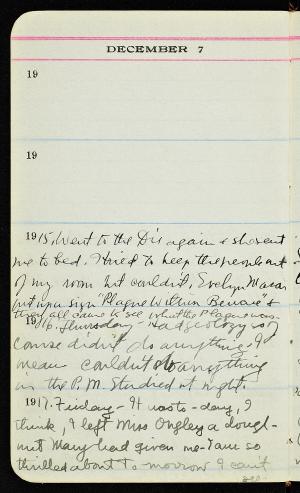 DECEMBER 7
19
19
1915. Went to the Dis again & she sent
me to bed. I tried to keep the people out
of my room but couldn't, Evelyn
put up a sign "Plague Within Beware" &
they all came to see what the Plague was.
1916. Thursday - Had geology so of
course didn't do anything. I
mean couldn't do anything
in the P.M. Studied at night.
1917. Friday - It was to-day, I
think, I left Miss Ongley a dough-
nut Mary had given me. I am so
thrilled about to-morrow I can't